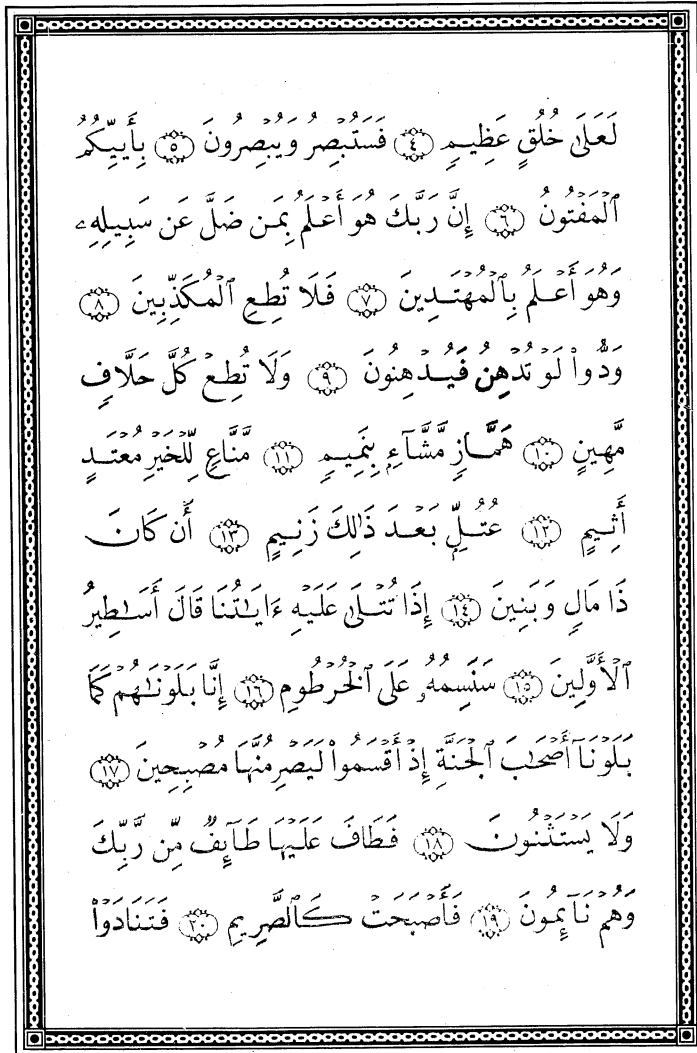 لَعَلَىٰ خُلُقٍ عَظِيمٍ ﴿٤﴾ فَسَتُبْصِرُ وَيُبْصِرُونَ ﴿٥﴾ بِأَييِّكُمُ
ٱلْمَفْتُونُ ﴿٦﴾ إِنَّ رَبَّكَ هُوَ أَعْلَمُ بِمَن ضَلَّ عَن سَبِيلِهِۦ
وَهُوَ أَعْلَمُ بِٱلْمُهْتَدِينَ ﴿٧﴾ فَلَا تُطِعِ ٱلْمُكَذِّبِينَ ﴿٨﴾
وَدُّوا۟ لَوْ تُدْهِنُ فَيُدْهِنُونَ ﴿٩﴾ وَلَا تُطِعْ كُلَّ حَلَّافٍ
مَّهِينٍ ﴿١٠﴾ هَمَّازٍ مَّشَّآءٍۭ بِنَمِيمٍ ﴿١١﴾ مَّنَّاعٍ لِّلْخَيْرِ مُعْتَدٍ
أَثِيمٍ ﴿١٢﴾ عُتُلٍّۭ بَعْدَ ذَٰلِكَ زَنِيمٍ ﴿١٣﴾ أَن كَانَ
ذَا مَالٍ وَبَنِينَ ﴿١٤﴾ إِذَا تُتْلَىٰ عَلَيْهِ ءَايَـٰتُنَا قَالَ أَسَـٰطِيرُ
ٱلْأَوَّلِينَ ﴿١٥﴾ سَنَسِمُهُۥ عَلَى ٱلْخُرْطُومِ ﴿١٦﴾ إِنَّا بَلَوْنَـٰهُمْ كَمَا
بَلَوْنَآ أَصْحَـٰبَ ٱلْجَنَّةِ إِذْ أَقْسَمُوا۟ لَيَصْرِمُنَّهَا مُصْبِحِينَ ﴿١٧﴾
وَلَا يَسْتَثْنُونَ ﴿١٨﴾ فَطَافَ عَلَيْهَا طَآئِفٌ مِّن رَّبِّكَ
وَهُمْ نَآئِمُونَ ﴿١٩﴾ فَأَصْبَحَتْ كَٱلصَّرِيمِ ﴿٢٠﴾ فَتَنَادَوْا۟